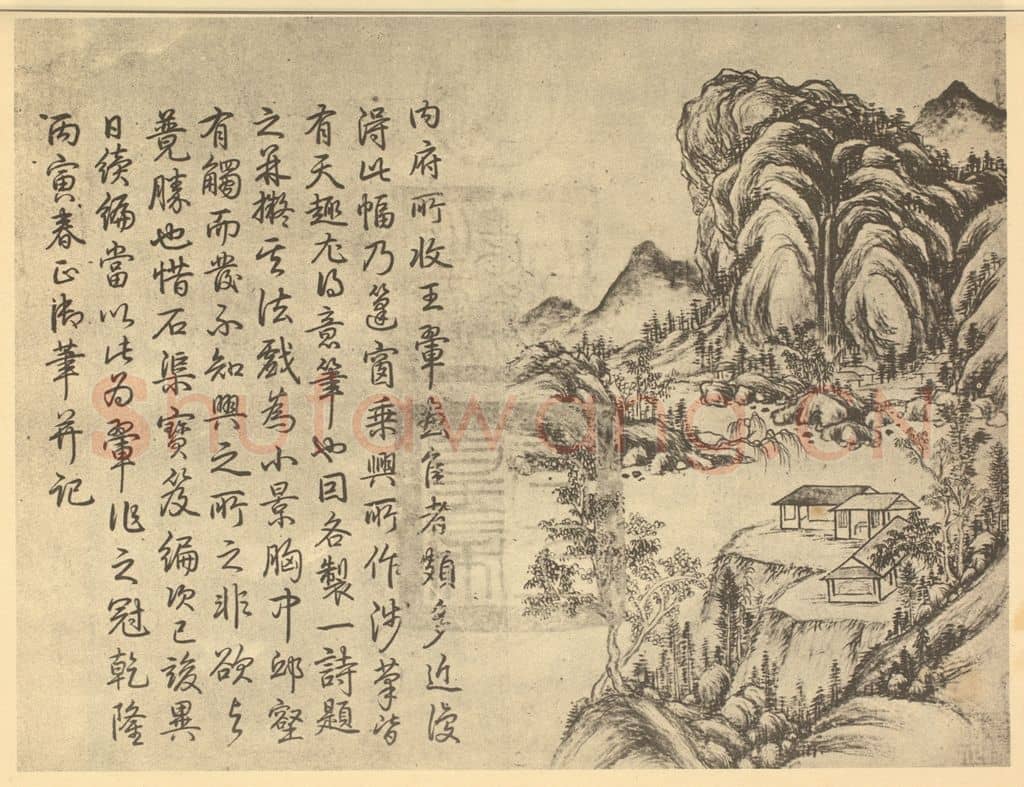 内府所收王翬畫佳者頗多近復
得此幅乃篷窗乘興所作涉筆皆
有天趣尤得意筆也因各製一詩題
之并擬其法戲為小景胸中邱壑
有觸而發不知興之所之非欲与
競勝也惜石渠寶笈編次已竣異
日續編當以此為翬作之冠乾隆
丙寅春正御筆并記
Shufawang.CN